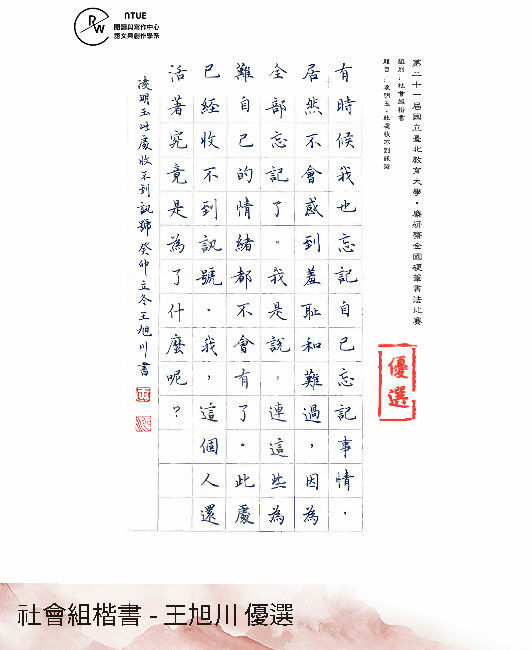 RW
NTUE
閱讀與寫作中心
語文與創作學系
第二十一屆國立臺北教育大學・麋研齋全國硬筆書法比賽
組別：社會組楷書
題目：凌明玉・此處收不到訊號
優選
有時候我也忘記自己忘記事情，
居然不會感到羞恥和難過，因為
全部忘記了。我是說，連這些為
難自己的情緒都不會有了。此處
已經收不到訊號。我，這個人還
活著究竟是為了什麼呢？
凌明玉此處收不到訊號 癸卯立冬王旭川書
社會組楷書 - 王旭川 優選